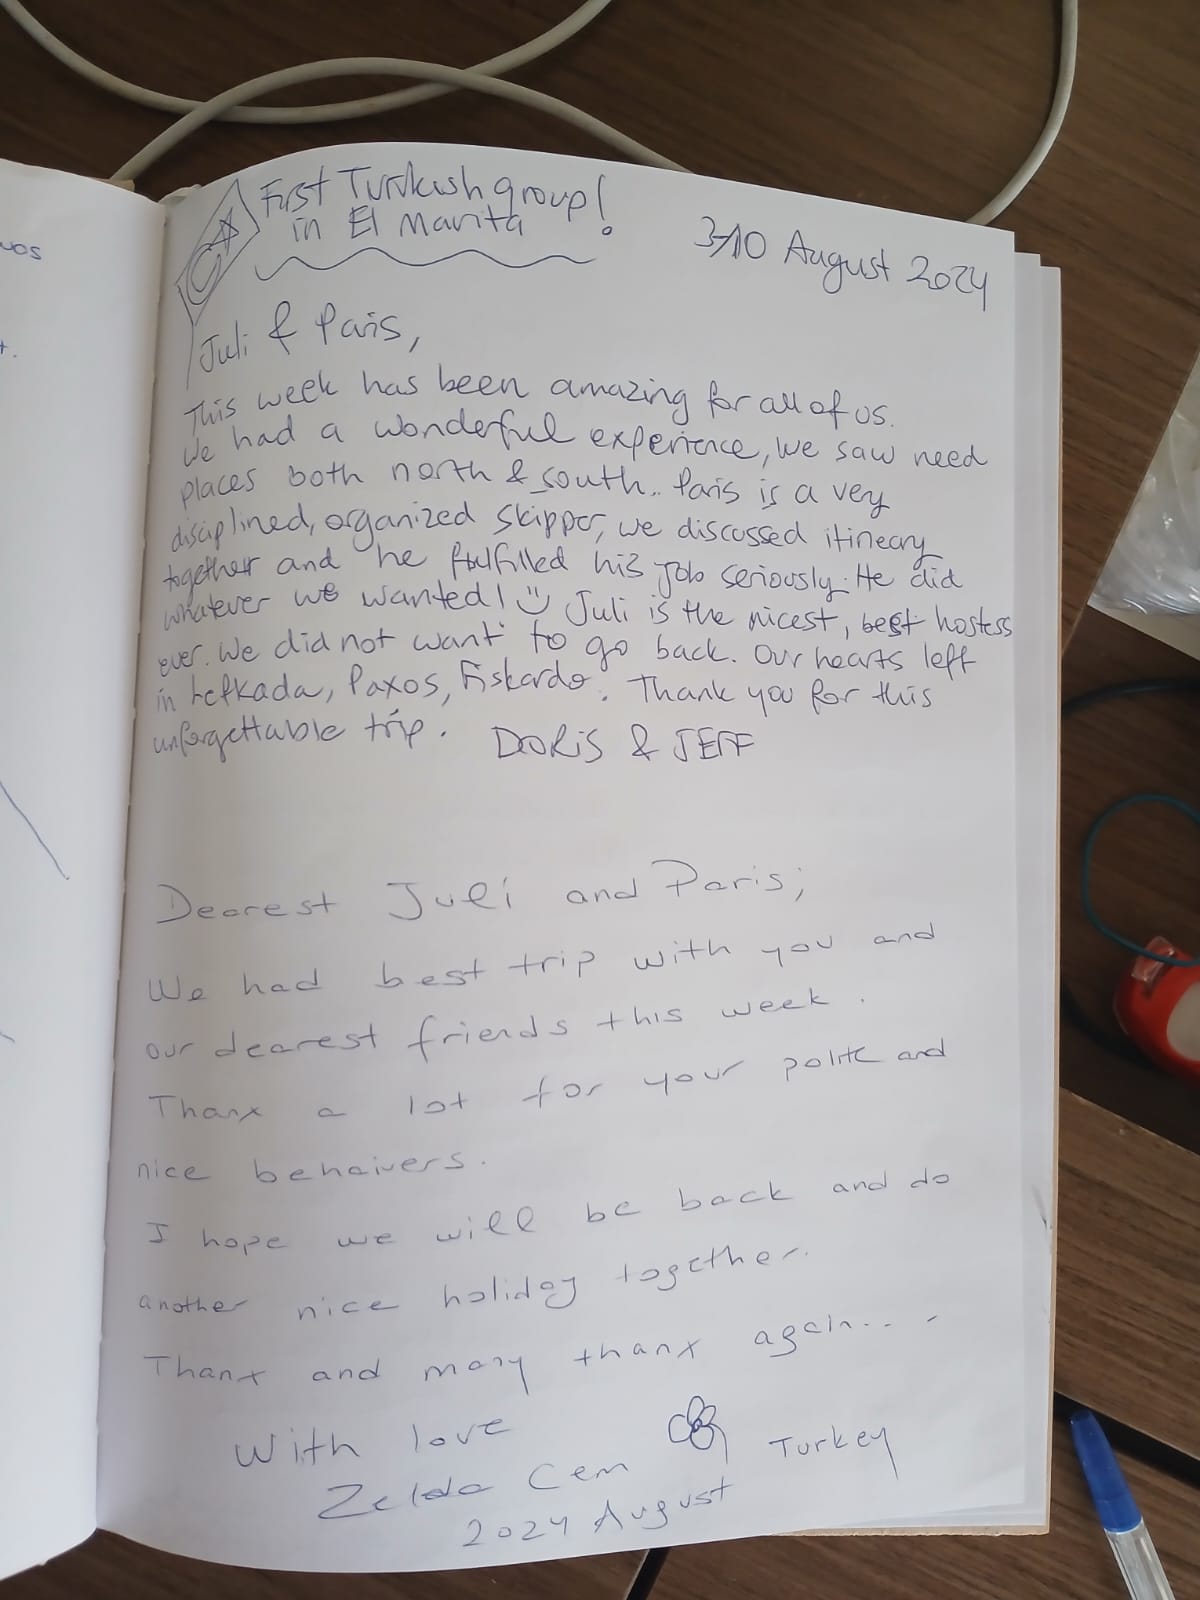 First Turkish group!
in El Marita
3-10 August 2024
Juli & Paris,
This week has been amazing for all of us.
We had a wonderful experience, we saw need
places both north & south.. Paris is a very
disciplined, organized skipper, we discussed itineary
together and he fulfilled his job seriously. He did
whatever we wanted! Juli is the nicest, best hostess
ever. We did not want to go back. Our hearts left
in Lefkada, Paxos, Fiskardo. Thank you for this
unforgettable trip. DORIS & JEFF
Dearest Juli and Paris;
We had best trip with you and
our dearest friends this week.
Thanx a lot for your polite and
nice behaivers.
I hope we will be back and do
another nice holiday together.
Thanx and many thanx again...
With love
Zelda Cem Turkey
2024 August